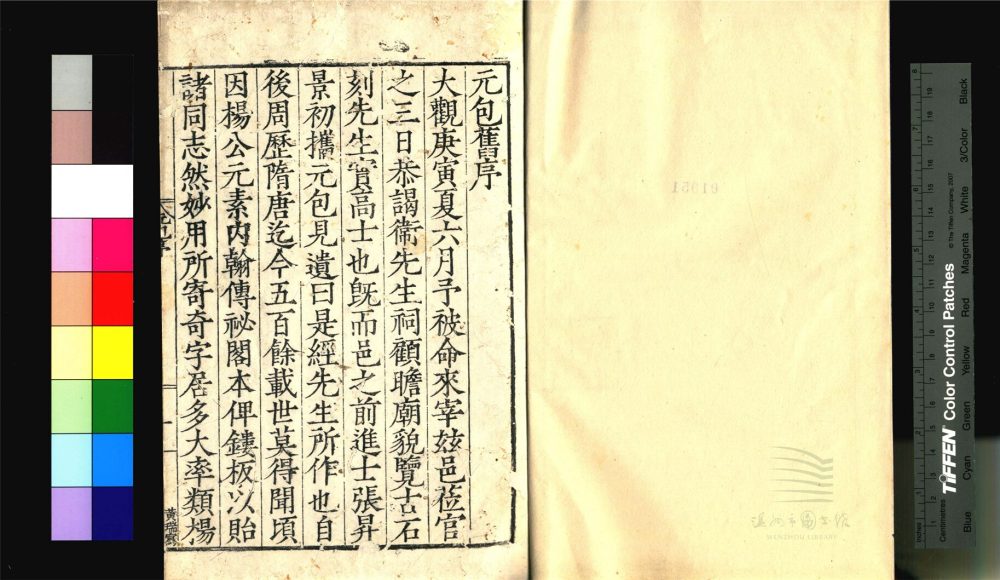 元包舊序
大觀庚寅夏六月予被命來宰兹邑莅官
之三日恭謁衞先生祠顧瞻廟貌覽古石
刻先生實高士也旣而邑之前進士張昇
景初攜元包見遺曰是經先生所作也自
後周歷隋唐迄今五百餘載世莫得聞頃
因楊公元素内翰傳祕閣本俾鏤板以貽
諸同志然妙用所寄奇字居多大率類揚
91951
溫州市圖書館
WENZHOU LIBRARY
TIFFEN Color Control Patches
© The Tiffen Company, 2007
Centimetres
Inches
Blue
Cyan
Green
Yellow
Red
Magenta
White
3/Color
Black